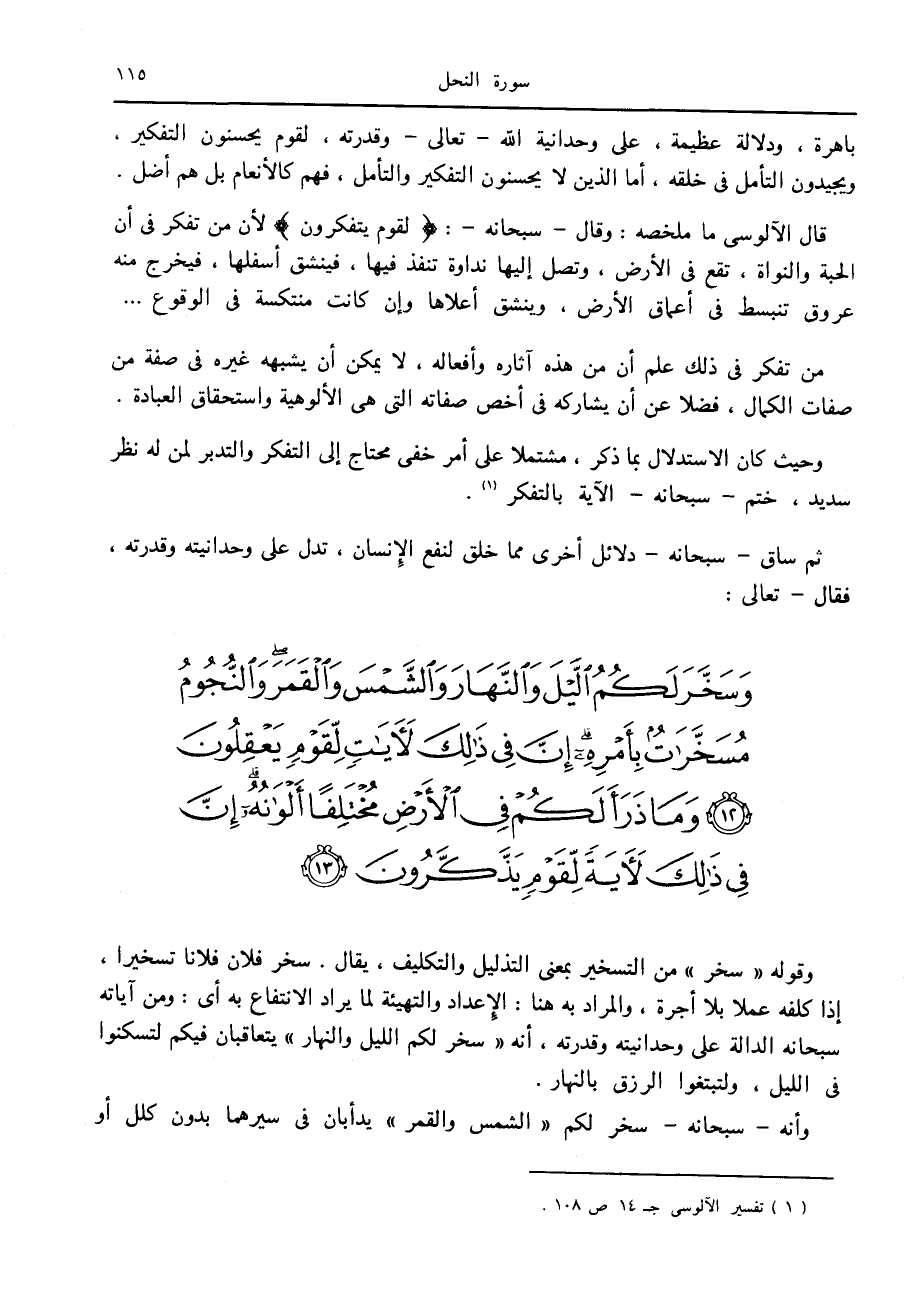 سورة النحل ١١٥
باهرة ، ودلالة عظيمة ، على وحدانية الله – تعالى – وقدرته ، لقوم يحسنون التفكير ،
ويجيدون التأمل فى خلقه ، أما الذين لا يحسنون التفكير والتأمل ، فهم كالأنعام بل هم أضل .
قال الآلوسى ما ملخصه : وقال – سبحانه – : ﴿ لقوم يتفكرون ﴾ لأن من تفكر فى أن
الحبة والنواة ، تقع فى الأرض ، وتصل إليها نداوة تنفذ فيها ، فينشق أسفلها ، فيخرج منه
عروق تنبسط فى أعماق الأرض ، وينشق أعلاها وإن كانت منتكسة فى الوقوع ...
من تفكر فى ذلك علم أن من هذه آثاره وأفعاله ، لا يمكن أن يشبهه غيره فى صفة من
صفات الكمال ، فضلا عن أن يشاركه فى أخص صفاته التى هى الألوهية واستحقاق العبادة .
وحيث كان الاستدلال بما ذكر ، مشتملا على أمر خفى محتاج إلى التفكر والتدبر لمن له نظر
سديد ، ختم – سبحانه – الآية بالتفكر (١) .
ثم ساق – سبحانه – دلائل أخرى مما خلق لنفع الإِنسان ، تدل على وحدانيته وقدرته ،
فقال – تعالى :
وَسَخَّرَ لَكُمُ ٱلَّيْلَ وَٱلنَّهَارَ وَٱلشَّمْسَ وَٱلْقَمَرَ ۖ وَٱلنُّجُومُ
مُسَخَّرَٰتٌۢ بِأَمْرِهِۦٓ ۗ إِنَّ فِى ذَٰلِكَ لَأَيَٰتٍ لِّقَوْمٍ يَعْقِلُونَ
١٢ وَمَا ذَرَأَ لَكُمْ فِى ٱلْأَرْضِ مُخْتَلِفًا أَلْوَٰنُهُۥٓ ۗ إِنَّ
فِى ذَٰلِكَ لَأَيَةً لِّقَوْمٍ يَذَّكَّرُونَ ١٣
وقوله « سخر » من التسخير بمعنى التذليل والتكليف ، يقال . سخر فلان فلانا تسخيرا ،
إذا كلفه عملا بلا أجرة ، والمراد به هنا : الإِعداد والتهيئة لما يراد الانتفاع به أى : ومن آياته
سبحانه الدالة على وحدانيته وقدرته ، أنه « سخر لكم الليل والنهار » يتعاقبان فيكم لتسكنوا
فى الليل ، ولتبتغوا الرزق بالنهار .
وأنه – سبحانه – سخر لكم « الشمس والقمر » يدأبان فى سيرهما بدون كلل أو
( ١ ) تفسير الآلوسى جـ ١٤ ص ١٠٨ .